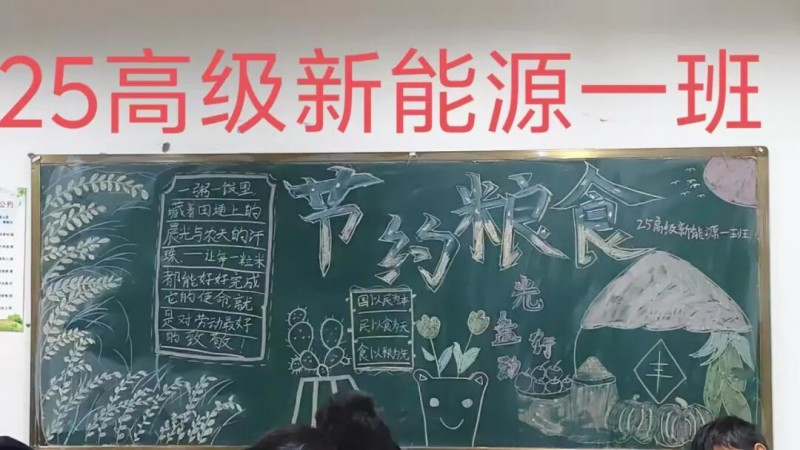 25高级新能源一班
一粥一饭里
藏着田埂上的
晨光与农夫的汗
珠——让每一粒米
都能好好完成
它的使命就
是对劳动最好
的致敬！
节约粮食
25高级新能源一班
国以民为本
民以食为天
食以粮为先
光盘行动
丰
公约